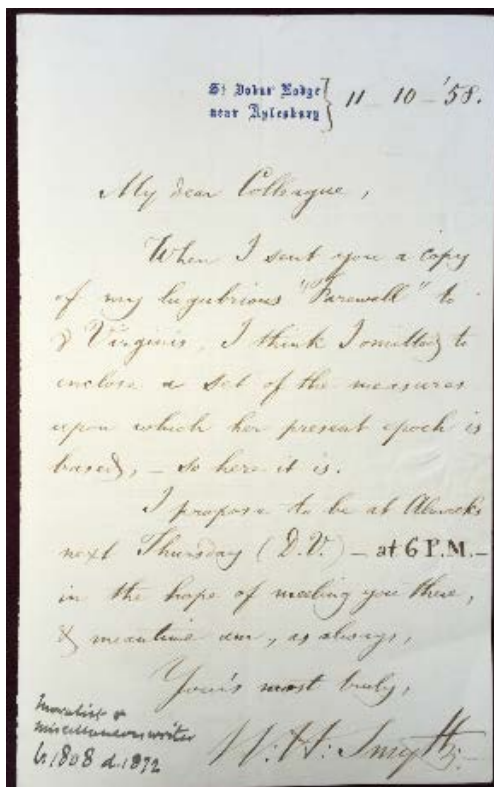 St Johns Lodge
near Aylesbury
11 - 10 - '58.
My dear Colleague,
When I sent you a copy
of my lugubrious "Farewell" to
γ Virginis, I think I omitted to
inclose a set of the measures
upon which her present epoch is
based, - so here it is.
I propose to be at
next Thursday (D.V.) - at 6 P.M. -
in the hope of meeting you there,
& meantime am, as always,
Your's most truly,
W. H. Smyth
Moralist &
miscellaneous writer
b. 1808 d. 1872